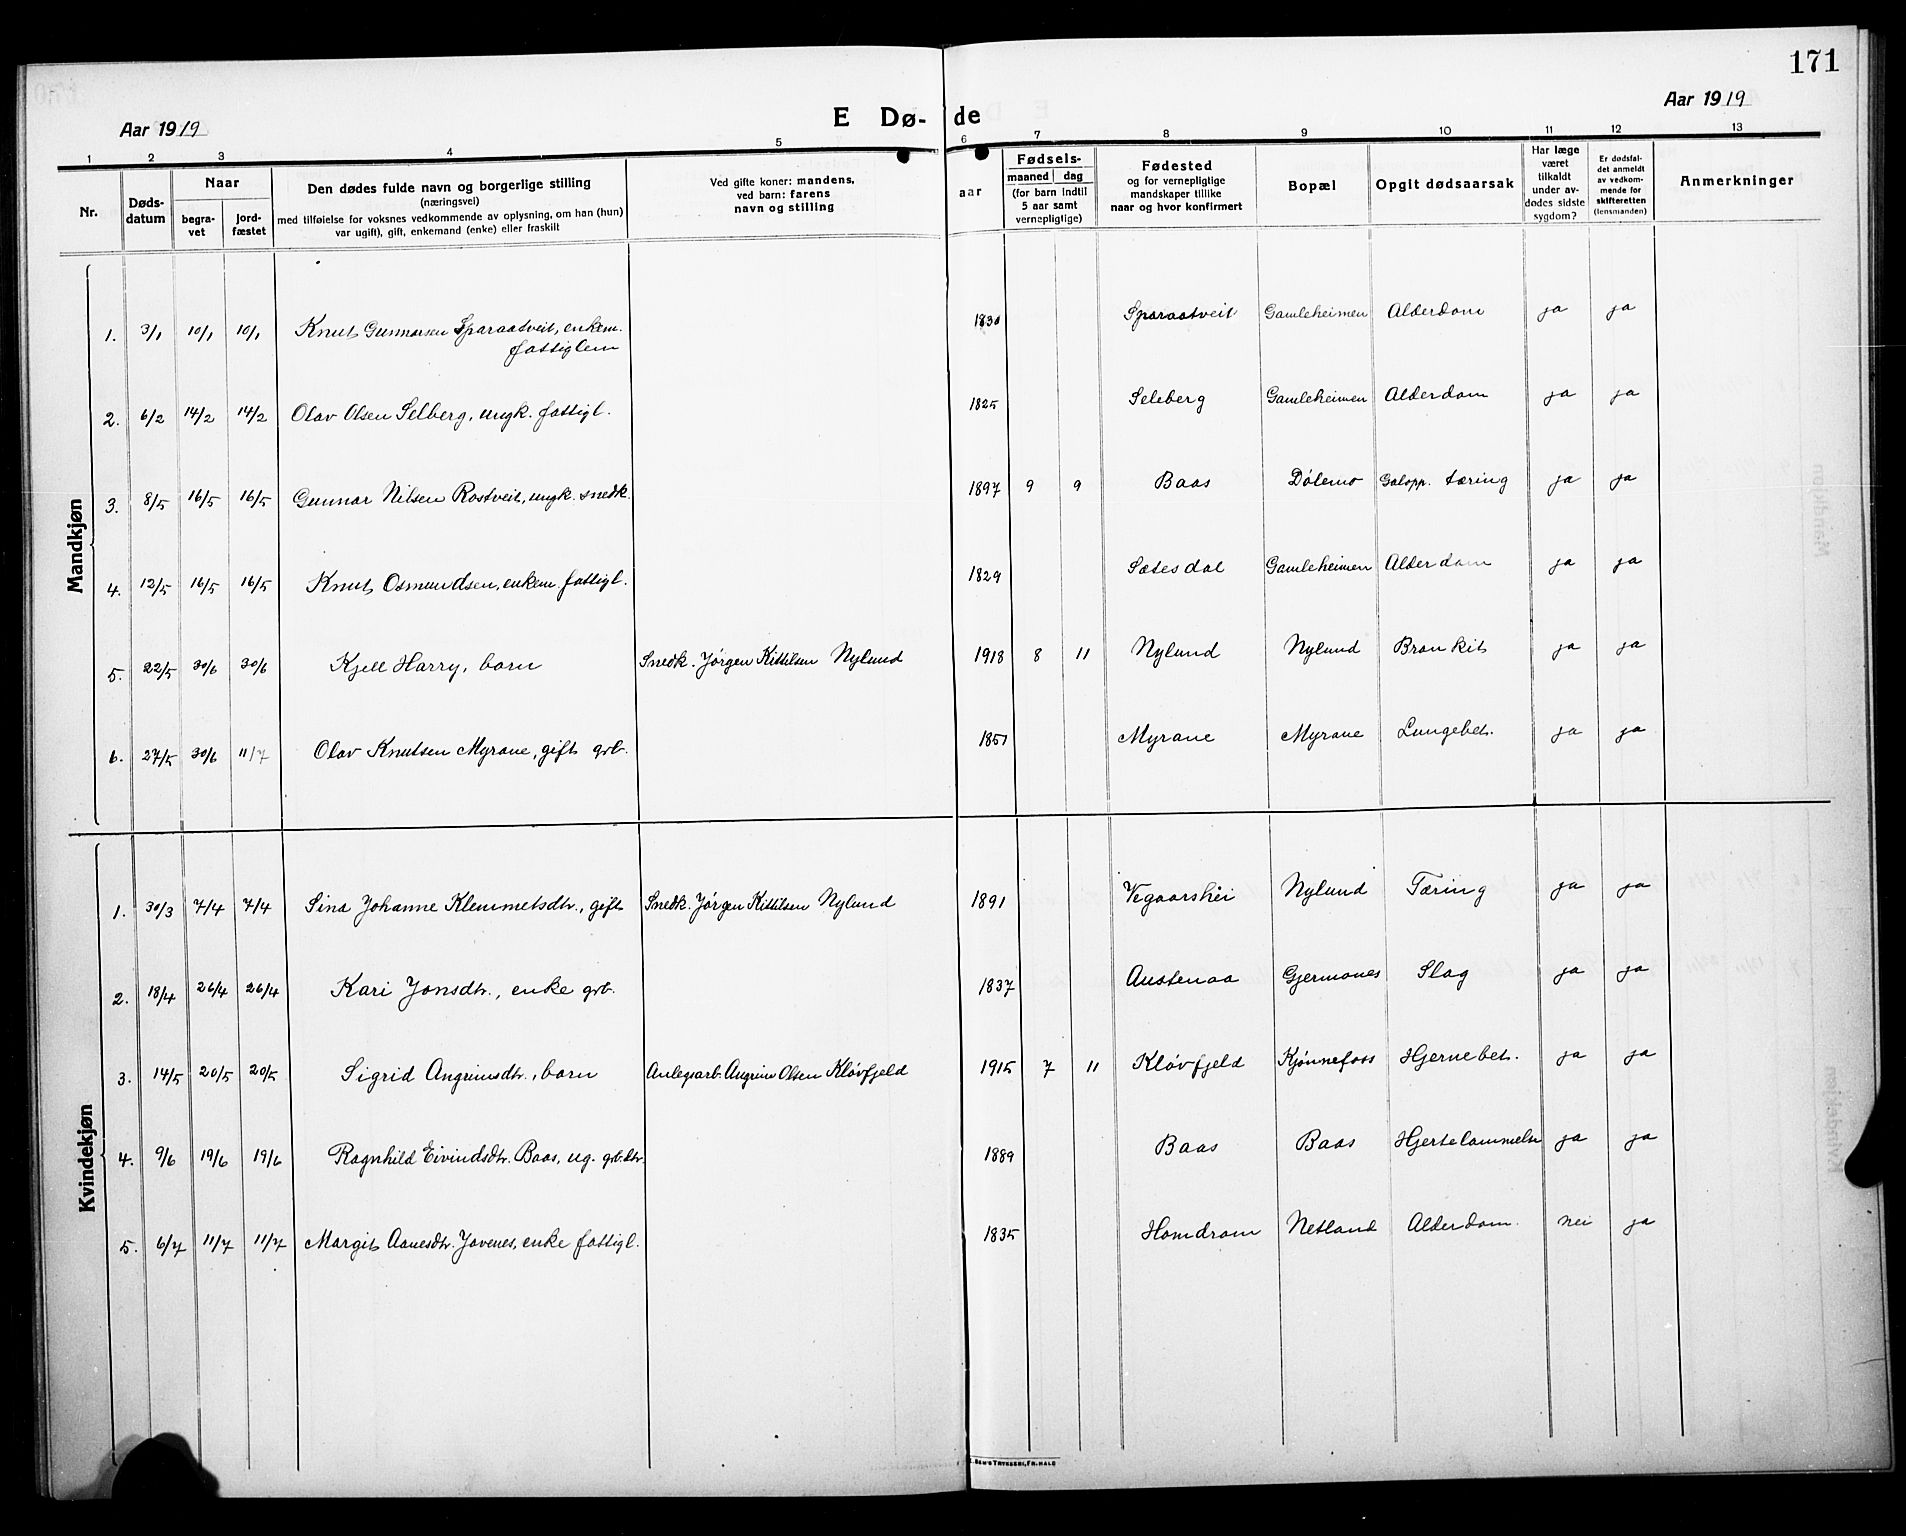 171
Aar 1919
E Dø-
de
Aar 1919
1 2 3 4 5 6 7 8 9 10 11 12 13
Nr.
Døds-
datum
Naar
begra-
vet
jord-
fæstet
Den dødes fulde navn og borgerlige stilling
(næringsvei)
med tilføielse for voksnes vedkommende av oplysning, om han (hun)
var ugift), gift, enkemand (enke) eller fraskilt
Ved gifte koner: mandens,
ved barn: farens
navn og stilling
aar
Fødsels-
maaned dag
(for barn indtil
5 aar samt
vernepligtige)
Fødested
og for vernepligtige
mandskaper tillike
naar og hvor konfirmert
Bopæl
Opgit dødsaarsak
Har læge
været
tilkaldt
under av-
dødes sidste
sygdom?
Er dødsfal-
det anmeldt
av vedkom-
mende for
skifteretten
(lensmanden)
Anmerkninger
Mandkjøn
1. 3/1 10/1 10/1 Knut Gunnarsen Sparaatveit, enkem. 1830 Sparaatveit Gamleheimen Alderdom ja ja
fattiglem
2. 6/2 14/2 14/2 Olav Olsen Selberg, ungk. fattigl. 1825 Seleberg Gamleheimen Alderdom ja ja
3. 8/5 16/5 16/5 Gunnar Nilsen Rostveit, ungk. snedk. 1897 9 9 Baas Dølemo Galopp. tæring ja ja
4. 12/5 16/5 16/5 Knut Osmundsen, enkem. fattigl. 1829 Sætesdal Gamleheimen Alderdom ja ja
5. 22/5 30/6 30/6 Kjell Harry, barn Snedk. Jørgen Kittilsen Nylund 1918 8 11 Nylund Nylund Bronkit ja ja
6. 27/5 30/6 11/7 Olav Knutsen Myrane, gift grb. 1851 Myrane Myrane Lungebet. ja ja
Kvindekjøn
1. 30/3 7/4 7/4 Sina Johanne Klemmetsdtr., gift Snedk. Jørgen Kittilsen Nylund 1891 Vegaarshei Nylund Tæring ja ja
2. 18/4 26/4 26/4 Kari Jonsdtr., enke grb. 1837 Austenaa Gjermones Slag ja ja
3. 14/5 20/5 20/5 Sigrid Angrimsdtr., barn Anlegsarb. Angrim Olsen Kløvfjeld 1915 7 11 Kløvfjeld Kjønnefoss Hjernebet. ja ja
4. 9/6 19/6 19/6 Ragnhild Eivindsdtr. Baas, ug. grb.dtr. 1889 Baas Baas Hjertelammelse ja ja
5. 6/7 11/7 11/7 Margit Aanesdtr. Jovenes, enke fattigl. 1835 Homdrom Netland Alderdom. nei ja